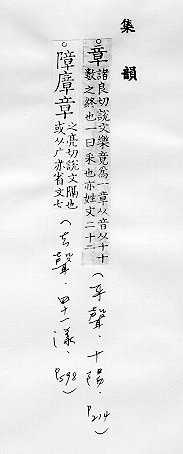 集韻
。章 諸良切說文樂竟為一章从音从十十
數之終也一曰采也亦姓文二十二
(平聲.十陽.P214)
。障㢓章 之亮切說文隔也
或从广亦省文七
(去聲.四十一漾.P598)